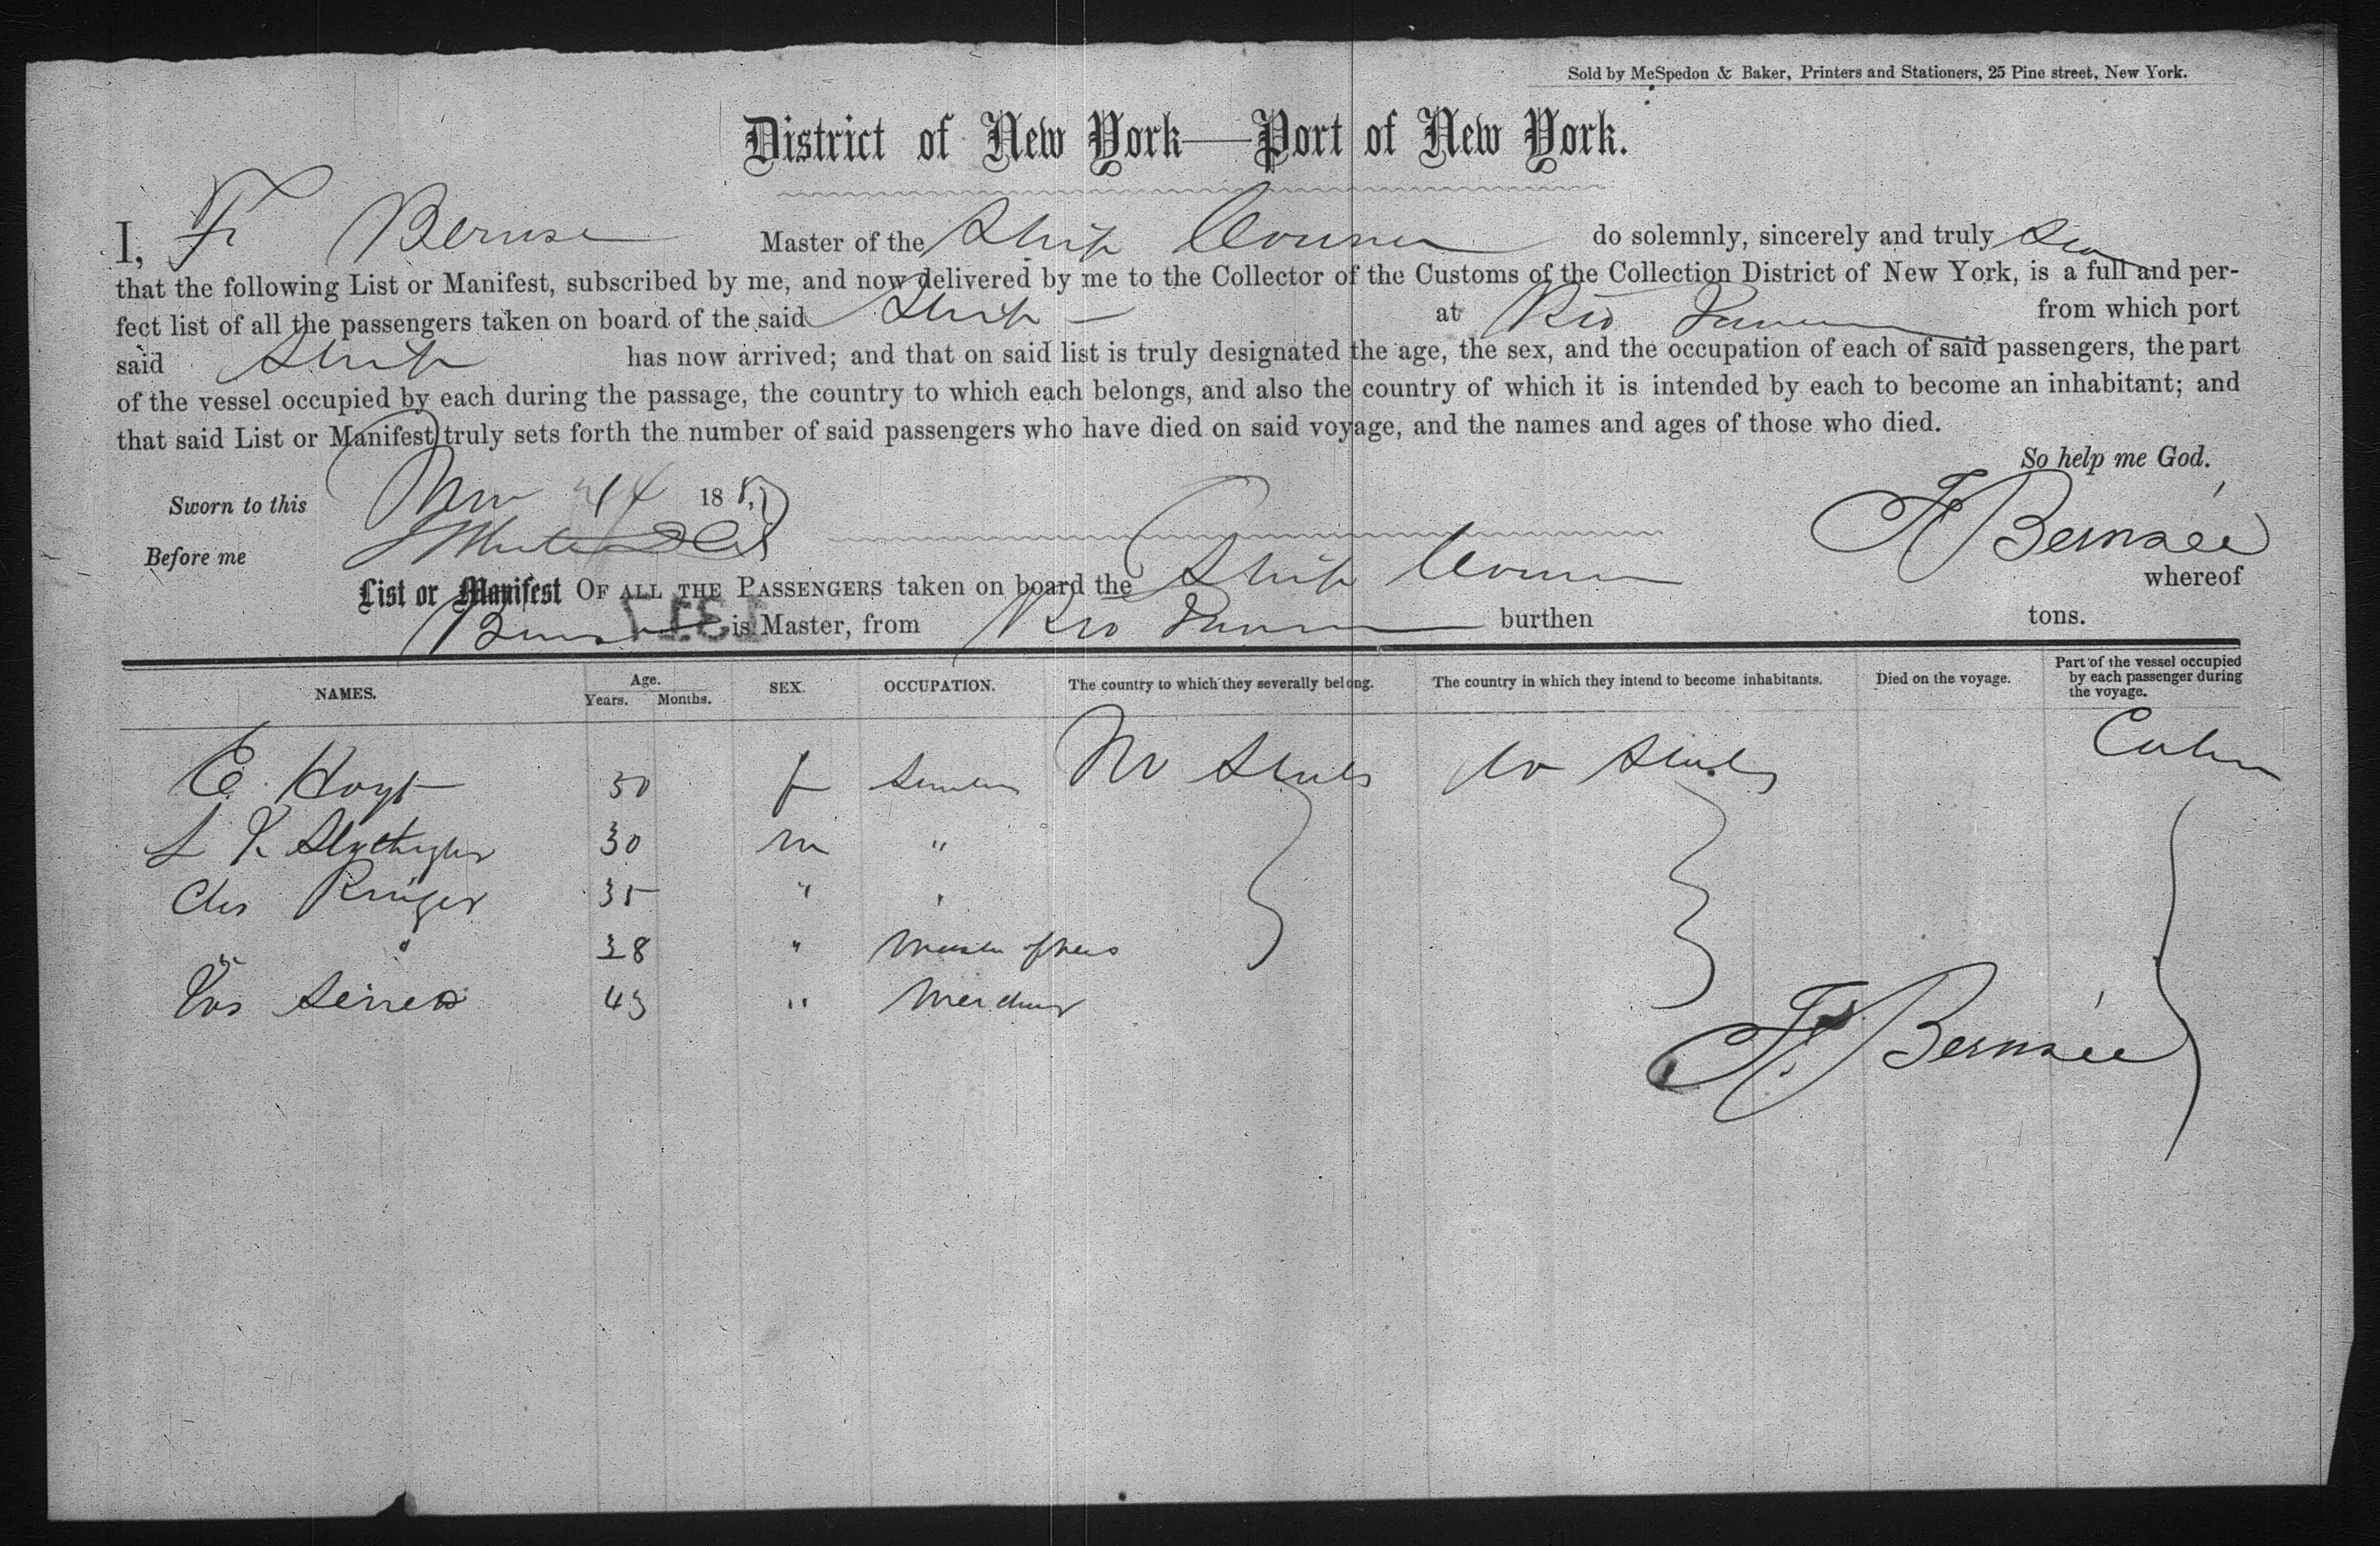 Sold by McSpedon & Baker, Printers and Stationers, 25 Pine street, New York.
District of New York—Port of New York.
I, F Bernsee Master of the Ship do solemnly, sincerely and truly
that the following List or Manifest, subscribed by me, and now delivered by me to the Collector of the Customs of the Collection District of New York, is a full and per-
fect list of all the passengers taken on board of the said Ship at Rio from which port
said Ship has now arrived; and that on said list is truly designated the age, the sex, and the occupation of each of said passengers, the part
of the vessel occupied by each during the passage, the country to which each belongs, and also the country of which it is intended by each to become an inhabitant; and
that said List or Manifest truly sets forth the number of said passengers who have died on said voyage, and the names and ages of those who died.
So help me God.
Sworn to this 185
F Bernsee
Before me
List or Manifest OF ALL THE PASSENGERS taken on board the Ship whereof
is Master, from Rio burthen tons.
NAMES. Age. Years. Months. SEX. OCCUPATION. The country to which they severally belong. The country in which they intend to become inhabitants. Died on the voyage. Part of the vessel occupied by each passenger during the voyage.
E. Hoyt 50 f States States
30 m "
Ringer 35 "
" " 38 "
43 "
F. Bernsee